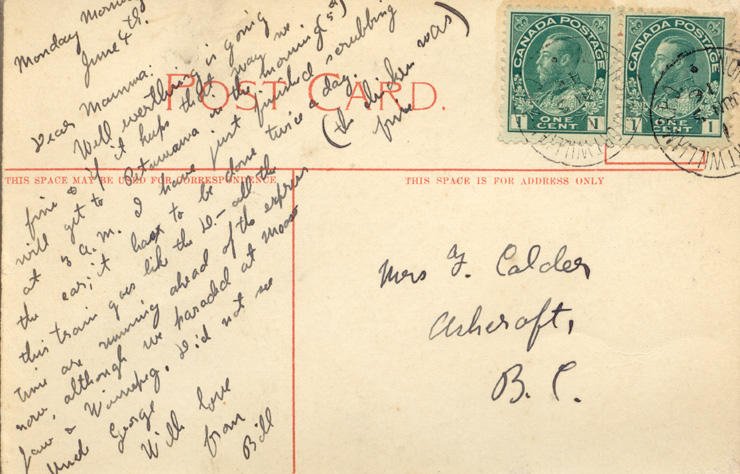 Monday Morning
June 4th.
Dear Mamma:
Well everthing is going
fine & if it keeps that way we
will get to Petawawa in the morning (5th)
at 3 a.m. I have just finished scrubbing
the car; it has to be done twice a day.
this train goes like the D— all the
time are running ahead of the express
now, although we paraded at Moose
Jaw & Winnipeg, Did not see
Uncle George
With love
from
Bill
(the chicken was)
fine
POST CARD.
THIS SPACE MAY BE USED FOR CORRESPONDENCE
THIS SPACE IS FOR ADDRESS ONLY
CANADA POSTAGE
1 ONE CENT 1
CANADA POSTAGE
1 ONE CENT 1
FORT WILLIAM
Mrs F. Calder
Ashcroft,
B. C.